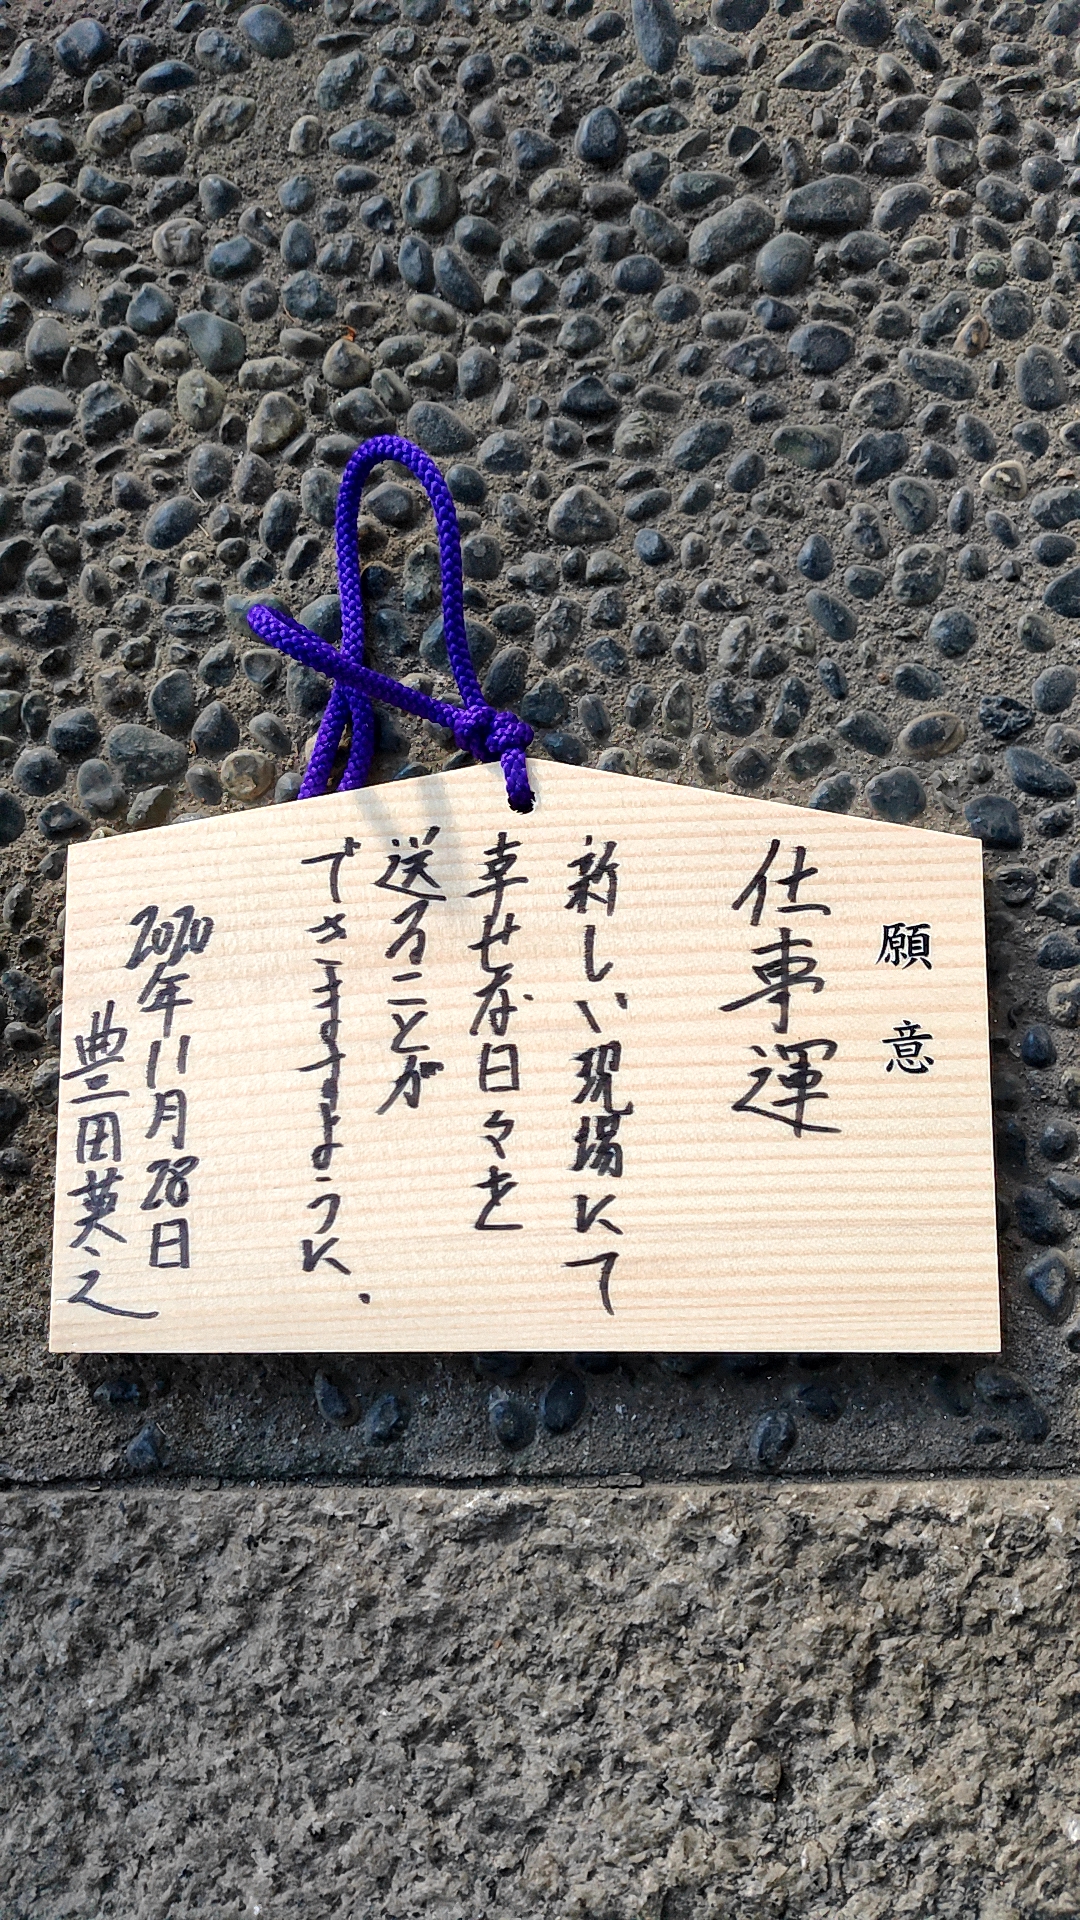 願意
仕事運
新しい現場にて
幸せな日々を
送ることが
できますように.
2020年11月28日
豊田英之